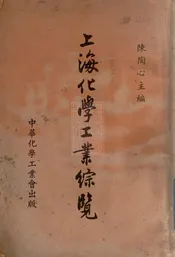 陳陶心主編
上海化學工業綜覽
中華化學工業會出版